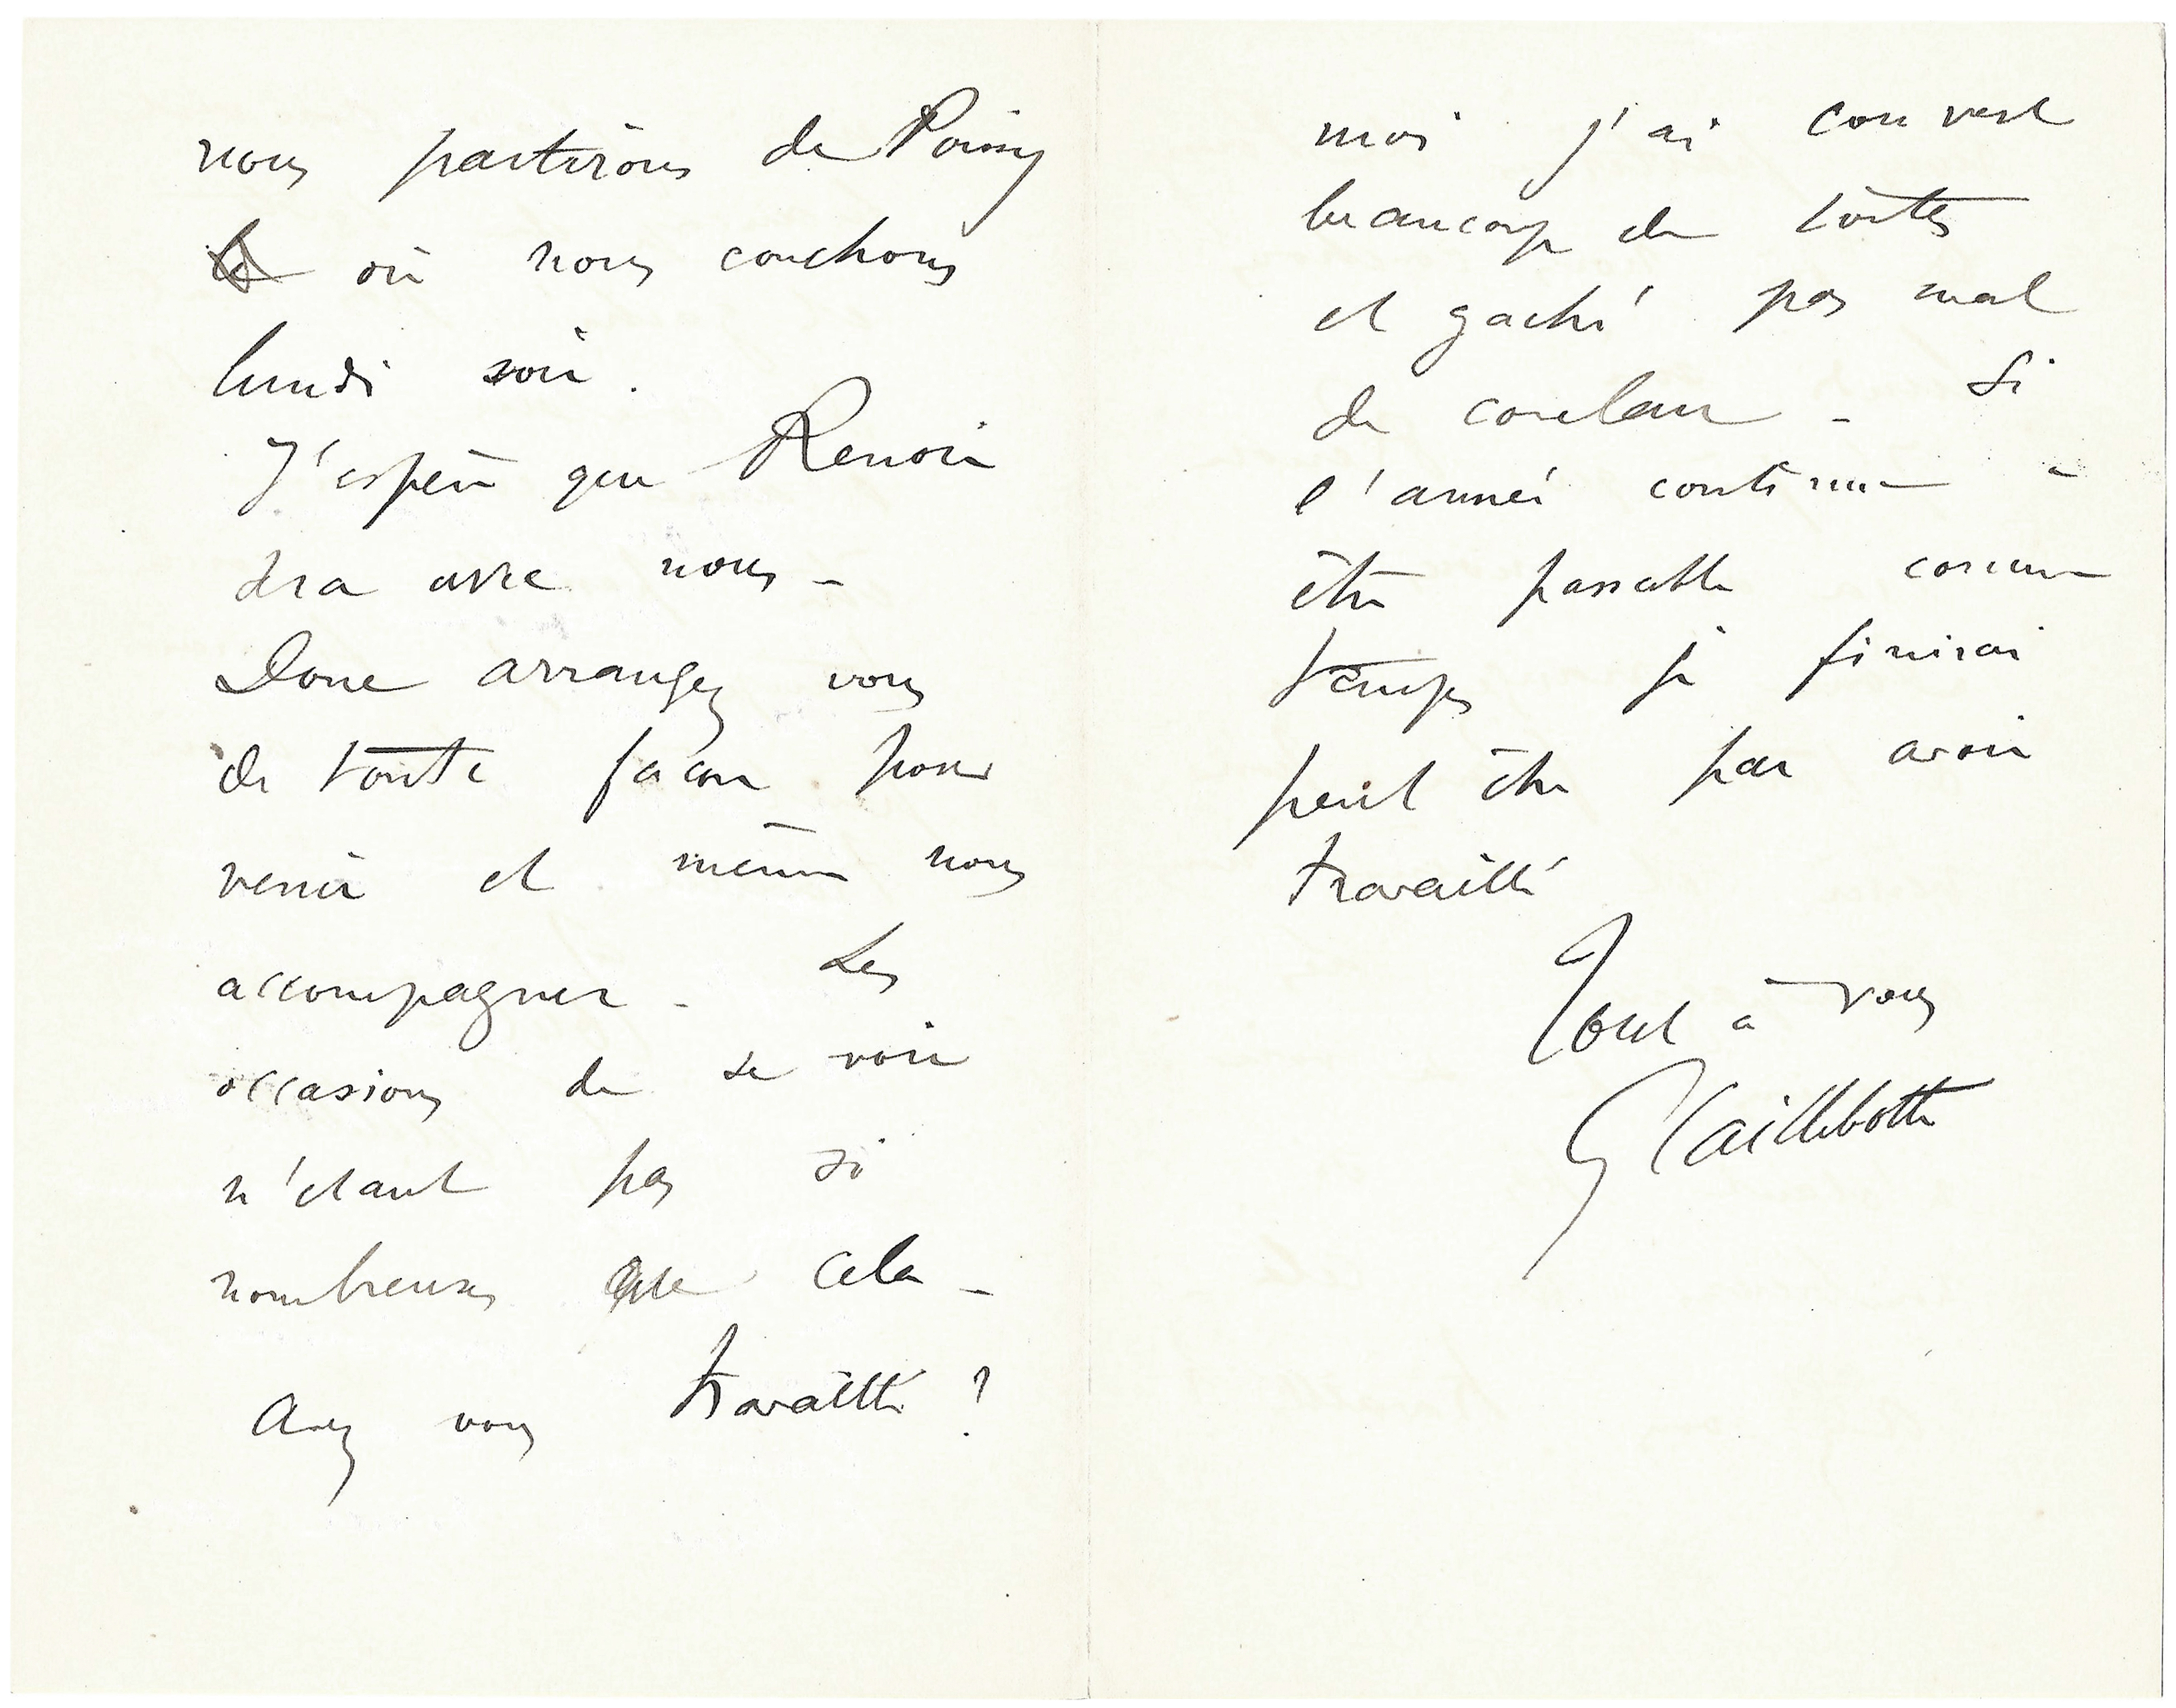 nous partirons de Poissy
où nous couchons
lundi soir.
J'espère que Renoir
sera avec nous -
Donc arrangez vous
de toute façon pour
venir et même nous
accompagner - Les
occasions de se voir
n'étant pas si
nombreuses que cela -
Avez vous travaillé ?
moi j'ai couvert
beaucoup de toiles
et gaché pas mal
de couleur - Si
l'année continue à
être passable comme
temps je finirai
peut être par avoir
travaillé
Tout à vous
G Caillebotte